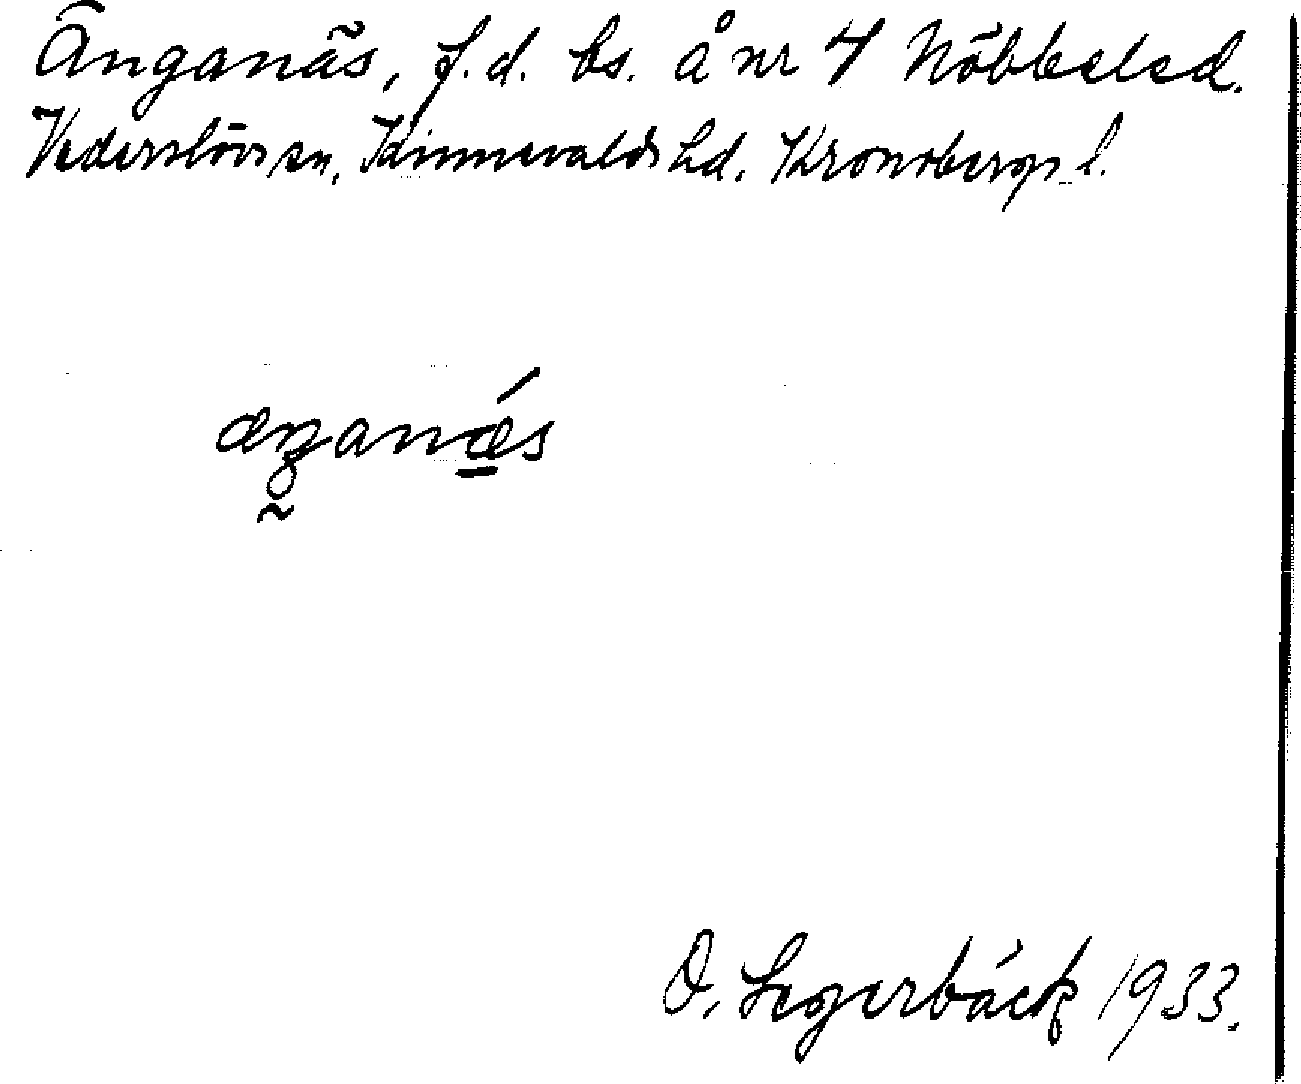 Änganäs, f.d. bs. å nr 4 Nöbbeled.
Vederslövs sn, Kinnevalds hd. Kronobergs l.
æŋanæ´s
O. Legerbäck 1933.